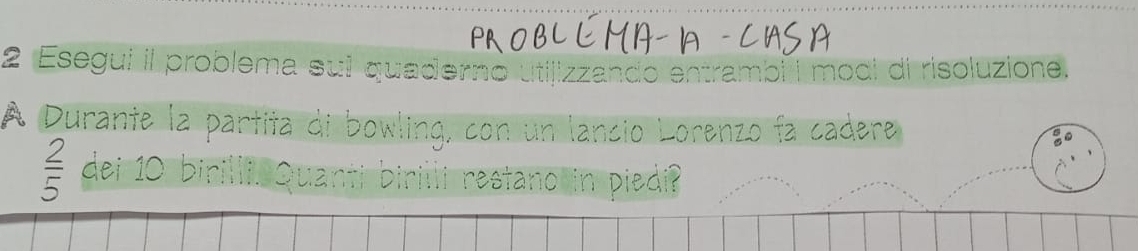 PROBLEMA-A-CASA
2 Esegui il problema sul quaderno utilizzando entrambi i modi di risoluzione.
A Durante la partita di bowling, con un lancio Lorenzo fa cadere
2/5 dei 10 birilli. Quanti birilli restano in piedi?